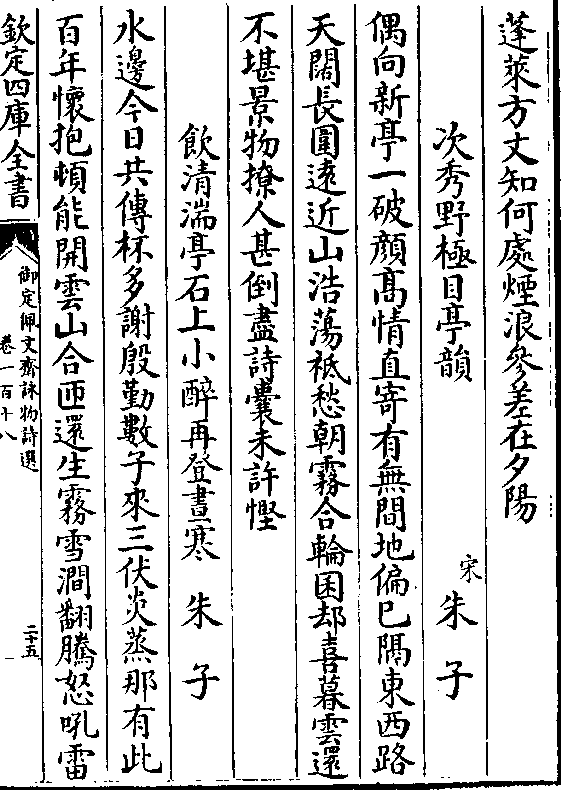 蓬萊方丈知何處煙浪參差在夕陽
次秀野極目亭韻　宋　朱子
偶向新亭一破顔高情直寄有無間地偏已隔東西路
天闊長圍遠近山浩蕩袛愁朝霧合輪囷却喜暮雲還
不堪景物撩人甚倒盡詩囊未許慳
飲清湍亭石上小醉再登晝寒　朱子
水邊今日共傳杯多謝殷勤數子來三伏炎蒸那有此
百年懷抱頓能開雲山合匝還生霧雪澗翻騰怒吼雷
欽定四庫全書
御定佩文齋詠物詩選
卷一百十八
二十五